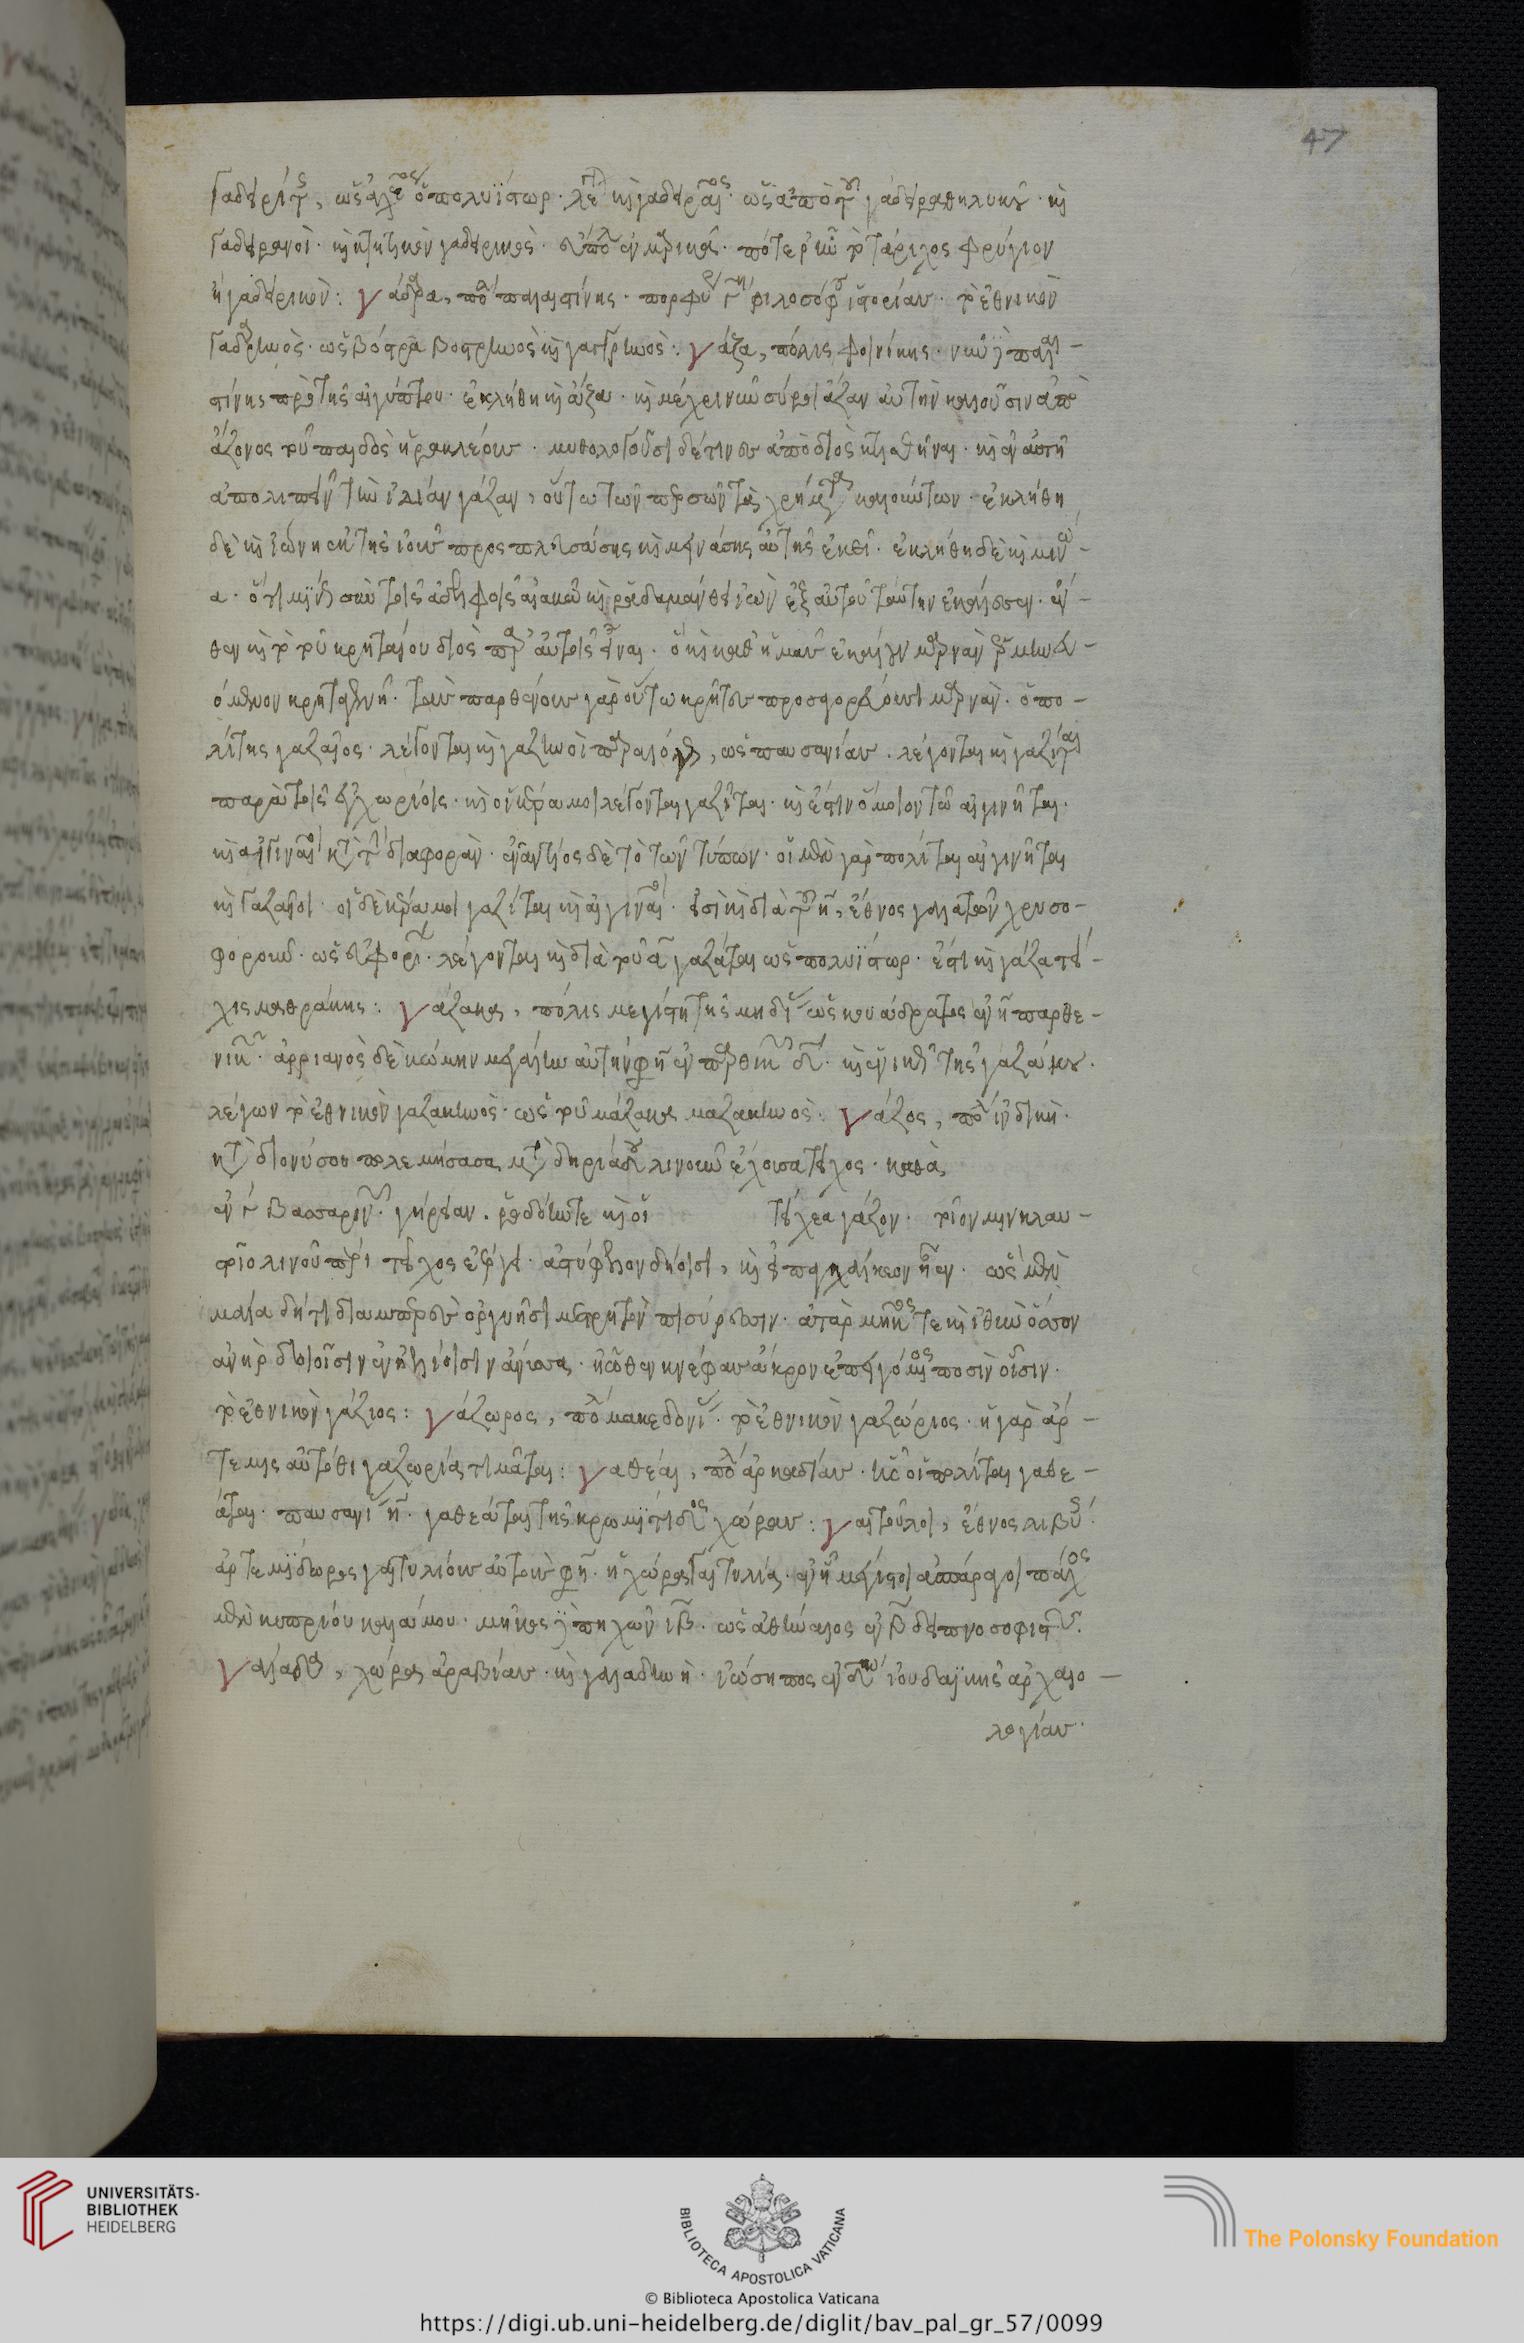 47
ὡς ὁ πολυΐστωρ · καὶ ὡς ἀπὸ γάδειρα θηλυκοῦ · καὶ
γαδειρανοί · καὶ κτητικὸν γαδειρικὸς · πότερ' ἦν τὸ τάριχος φρύγιον
ἢ γαδειρικόν : γάδρα, παλαιστίνης · φιλοσόφου ἱστορίας · τὸ ἐθνικὸν
γαδρηνὸς · ὡς βόστρα βοστρηνὸς καὶ · γάζα, πόλις φοινίκης · νῦν δὲ παλαι-
στίνης πρὸ τῆς αἰγύπτου · ἐκλήθη καὶ ἄζα · καὶ μέχρι νῦν σύροι ἄζαν αὐτὴν καλοῦσιν ἀπὸ
ἄζονος τοῦ παιδὸς ἡρακλέους · μυθολογοῦσι δέ τινες ἀπὸ διὸς κτισθῆναι · καὶ ἐν αὐτῇ
ἀπολιπεῖν τὴν ἰδίαν γάζαν, οὕτω τῶν περσῶν τὰ χρήματα καλούντων · ἐκλήθη
δὲ καὶ ἰώνη ἐκ τῆς ἰοῦς · ἐκλήθη δὲ καὶ μιν-
α · ὅτι μίνως σὺν τοῖς ἀδελφοῖς αἰακῷ καὶ ῥαδαμάνθει ἰὼν ἐξ αὐτοῦ ταύτην ἐκάλεσεν · ἔν-
θεν καὶ τὸ τοῦ κρηταίου διὸς παρ' αὐτοῖς εἶναι · ὃν καὶ καθ' ἡμᾶς ἐκάλουν μαρνὰν ἑρμηνευ-
όμενον κρηταγενῆ · τὰς παρθένους γὰρ οὕτω κρῆτες προσαγορεύουσι μαρνάν · ὁ πο-
λίτης γαζαῖος · λέγονται καὶ γαζηνοὶ παρὰ, ὡς παυσανίας · λέγονται καὶ γαζῖται
παρὰ τοῖς ἐγχωρίοις · καὶ οἱ κέραμοι λέγονται γαζῖται · καὶ ἔστιν ὅμοιον τῷ αἰγινῆται ·
καὶ αἰγιναῖοι κατὰ τὴν διαφορὰν · ἐναντίος δὲ τὸ τῶν τύπων · οἱ μὲν γὰρ πολῖται αἰγινῆται
καὶ γαζαῖοι · οἱ δὲ κέραμοι γαζῖται καὶ αἰγιναῖοι · ἔθνος γαλατῶν χρυσο-
φοροῦν · ὡς · λέγονται καὶ διὰ τοῦ α γαζάται ὡς πολυΐστωρ · ἔστι καὶ γάζα τεῖ-
χισμα θρᾴκης : γάζακα, πόλις μεγίστη τῆς μηδίας ὡς κουάδρατος ἐν η παρθι-
κῶν · ἀρριανὸς δὲ κώμην μεγάλην αὐτὴν φησὶν ἐν παρθικῶν δ · καὶ γενικὴ τῆς γαζάκου ·
λέγων τὸ ἐθνικὸν γαζακηνὸς · ὡς τοῦ μάζακα μαζακηνός : γάζος, πόλις ἰνδικὴ ·
κατὰ διονύσου πολεμήσασα μετὰ δηριάδου λινοῦν ἔχουσα τεῖχος · καθὰ
ἐν γ βασσαρικῶν · γήρειαν · ῥοδόην τε καὶ οἳ τείχεα γάζον · τοῖόν μιν κλω-
στοῖο λινοῦ πέρι τεῖχος ἐέργει · ἀστύφελον δηίοισι, καὶ εἰ παγχάλκεον ἦεν · ὡς μὲν
μάλα δή τι διαμπερὲς ὀργυῇσι μετρητὸν πισύρεσσιν · ἀτὰρ μῆκός τε καὶ ἰθὺν ὅσσον
ἀνὴρ δοιοῖσιν ἐν ἠελίοισιν ἀνύσσαι · ἠῶθεν κνέφας ἄκρον ἐπειγόμενος ποσὶν οἷσιν ·
τὸ ἐθνικὸν γάζιος : γάζωρος, πόλις μακεδονίας · τὸ ἐθνικὸν γαζώριος · ἡ γὰρ ἄρ-
τεμις αὐτόθι γαζωρία τιμᾶται : γαθέαι, πόλις ἀρκαδίας · καὶ οἱ πολῖται γαθε-
άται · παυσανίας η · γαθεάται τῆς κρωμίτιδος χώρας : γαιτοῦλοι, ἔθνος λιβύης ·
ἀρτεμίδωρος γαιτυλίους αὐτοὺς φησὶ · ἡ χώρα γαιτυλία · ἐν ᾗ μέγιστοι ἀσπάραγοι πάχος
μὲν κυπρίου καλάμου · μῆκος δὲ πηχῶν ιβ · ὡς ἀθήναιος ἐν β δειπνοσοφιστῶν ·
γάλαδα, χώρα ἀραβίας · καὶ γαλαδηνὴ · ἰώσηπος ἐν ἰουδαϊκῆς ἀρχαιο-
λογίας ·
UNIVERSITÄTS-
BIBLIOTHEK
HEIDELBERG
BIBLIOTECA APOSTOLICA VATICANA
The Polonsky Foundation
© Biblioteca Apostolica Vaticana
https://digi.ub.uni-heidelberg.de/diglit/bav_pal_gr_57/0099